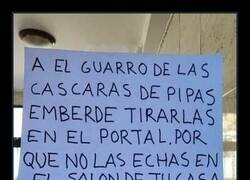 A EL GUARRO DE LAS
CASCARAS DE PIPAS
EMBERDE TIRARLAS
EN EL PORTAL, POR
QUE NO LAS ECHAS EN
EL SALON DE TU CASA